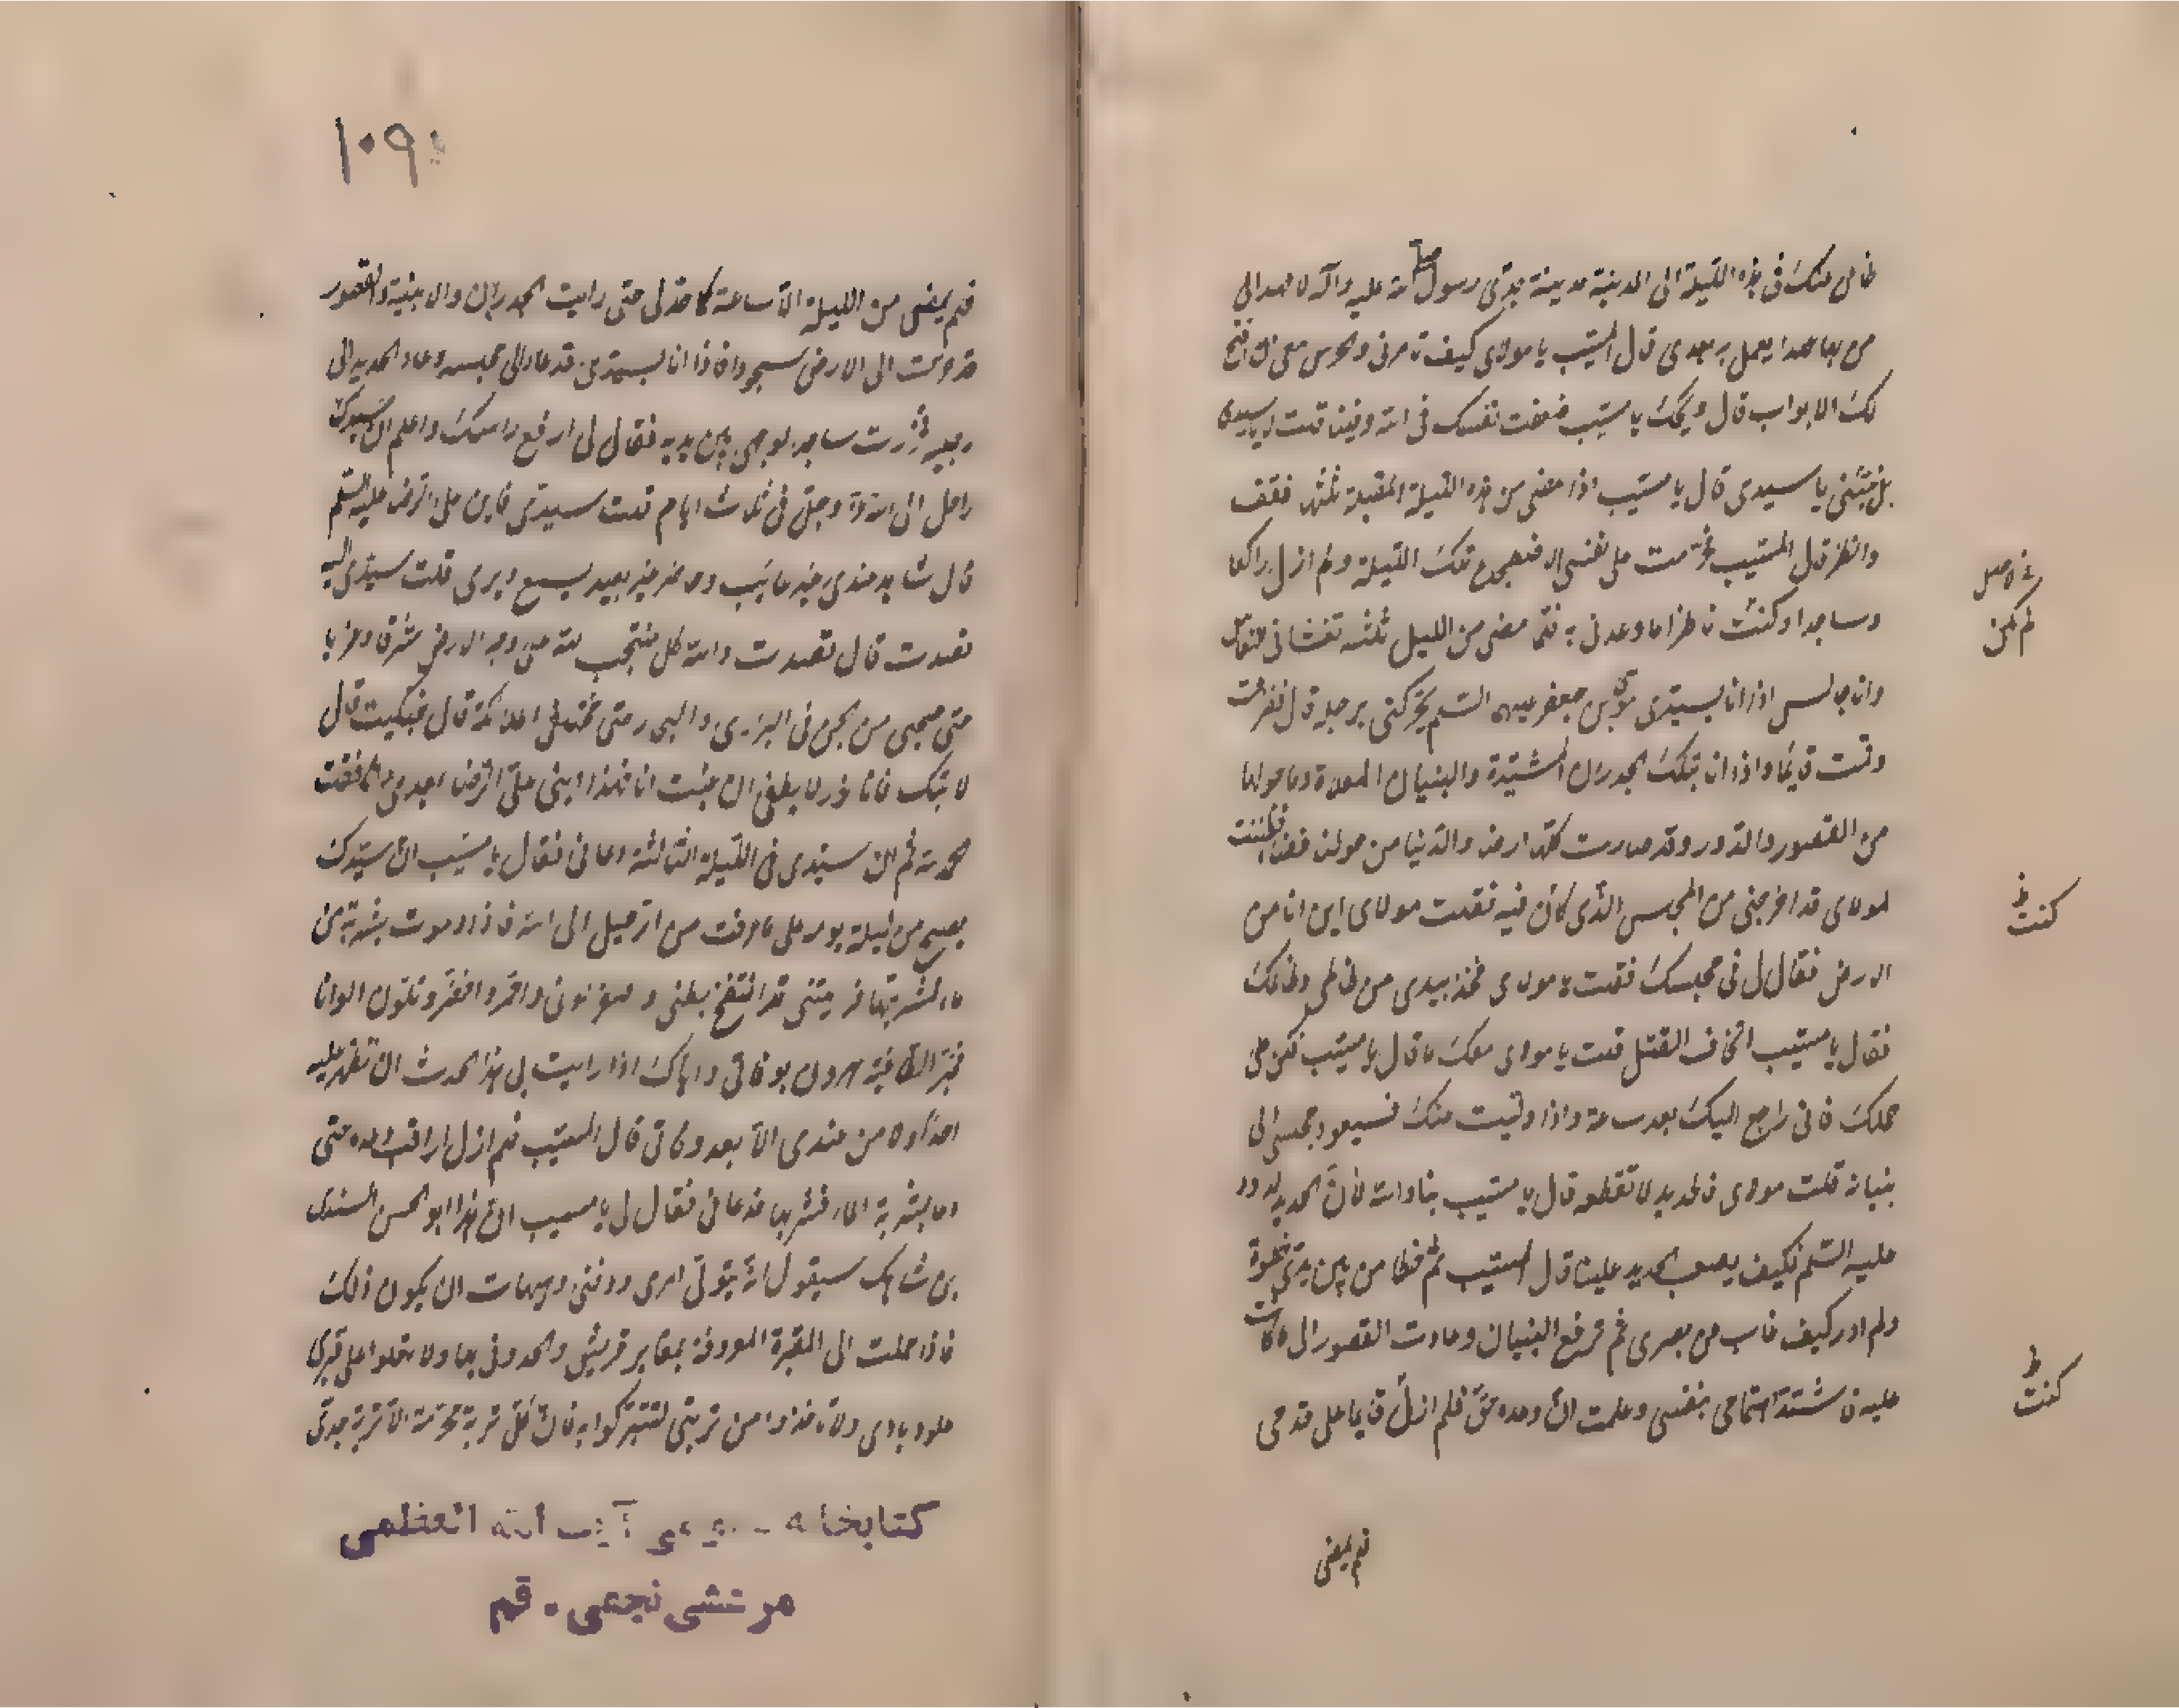 ظاعن عنك في هذه الليلة الى المدينة مدينة جدى رسول الله صلى الله عليه وآله لاعهد الى
من بها عهدا يعمل به بعدى قال المسيب يا مولاى كيف تامرنى والحرس معى ان افتح
لك الابواب قال ويحك يا مسيب ضعفت نفسك في الله وفينا قلت لا يا سيدى
بل بيّنى يا سيدى قال يا مسيب اذا مضى من هذه الليلة المقبلة ثلثها فقف
وانظر قال المسيب فحرمت على نفسى الاضطجاع تلك الليلة ولم ازل راكعا
وساجدا وكنت ناظرا ما وعدنى به فلما مضى من الليل ثلثه تغشانى النعاس
وانا جالس اذا انا بسيدى موسى بن جعفر عليهما السلم يحركنى برجله قال ففزعت
وقمت قائما واذا انا بتلك الجدران المشيدة والبنيان المعلاة وما حولها
من القصور والدور وقد صارت كلها ارضا والدنيا من حولنا فضاء فظننت
لمولاى قد اخرجنى من المجلس الذى كان فيه فقلت مولاى اين انا من
الارض فقال لى في مجلسك فقلت يا مولاى فخذ بيدى من ظالمى وظالمك
فقال يا مسيب اتخاف القتل قلت يا مولاى معك لا قال يا مسيب فكن على
حملك فانى راجع اليك بعد ساعة واذا وليت عنك فسيعود مجلسى الى
بنيانه قلت مولاى فالحديد لا تقطعه قال يا مسيب بنا والله لان الحديد لداود
عليه السلم فكيف يصعب الحديد علينا قال المسيب ثم خطا من بين يدى خطوة
ولم ادر كيف غاب من بصرى ثم ترفع البنيان وعادت القصور الى ما كانت
عليه فاشتد اهتمامى بنفسى وعلمت ان وعده حق فلم ازل قايما على قدمى
فلم يمضى
لم يكن
كنت
كنت
١٠٩
فلم يمضى من الليلة الا ساعة كما حد لى حتى رايت الجدران والابنية والقصور
قد خرت الى الارض سجودا فاذا انا بسيدى قد عاد الى مجلسه وعاد الحديد الى
رجليه فخررت ساجدا لوجهى بين يديه فقال لى ارفع راسك واعلم ان سيدك
راحل الى الله عز وجل فى ثلاث ايام قلت سيدى فاين على الرضا عليه السلم
قال شاهد عندى غير غايب وحاضر غير بعيد يسمع ويرى قلت سيدى اليه
قصدت قال قصدت والله كل منتجب لله على وجه الارض شرقا وغربا
حتى محبى من الجن فى البرارى والبحار حتى مخلصى الملائكة قال فبكيت قال
لا تبك فانا نور لا يطفى ان غبت انا فهذا ابنى على الرضا بعدى انا فقلت
الحمد لله ثم ان سيدى فى الليلة الثالثة دعانى فقال يا مسيب ان سيدك
يصبح من ليلة يومه على ما عرفت من الرحيل الى الله فاذا دعوت بشربة من
ماء فشربتها فرايتنى قد انتفخ بطنى واصفر لونى واحمر واخضر وتلون الوانا
فخبر الطاغية هرون بوفاتى واياك اذا رايت بى هذا الحدث ان تظهر عليه
احدا ولا من عندى الا بعد وفاتى قال المسيب فلم ازل اراقب وعده حتى
دعا بشربة الماء فشربها فدعانى فقال لى يا مسيب ان هذا ابو الحسن السندى
بن شاهك سيقول انه يتولى امرى ودفنى وهيهات ان يكون ذلك
فاذا حملت الى المقبرة المعروفة بمقابر قريش والحدونى بها ولا تعلوا على قبرى
علوا باذى ولا تاخذوا من تربتى لتتبركوا به فان كل تربة محرمة الا تربة جدى
كتابخانه عمومى آيت الله العظمى
مرعشى نجفى - قم